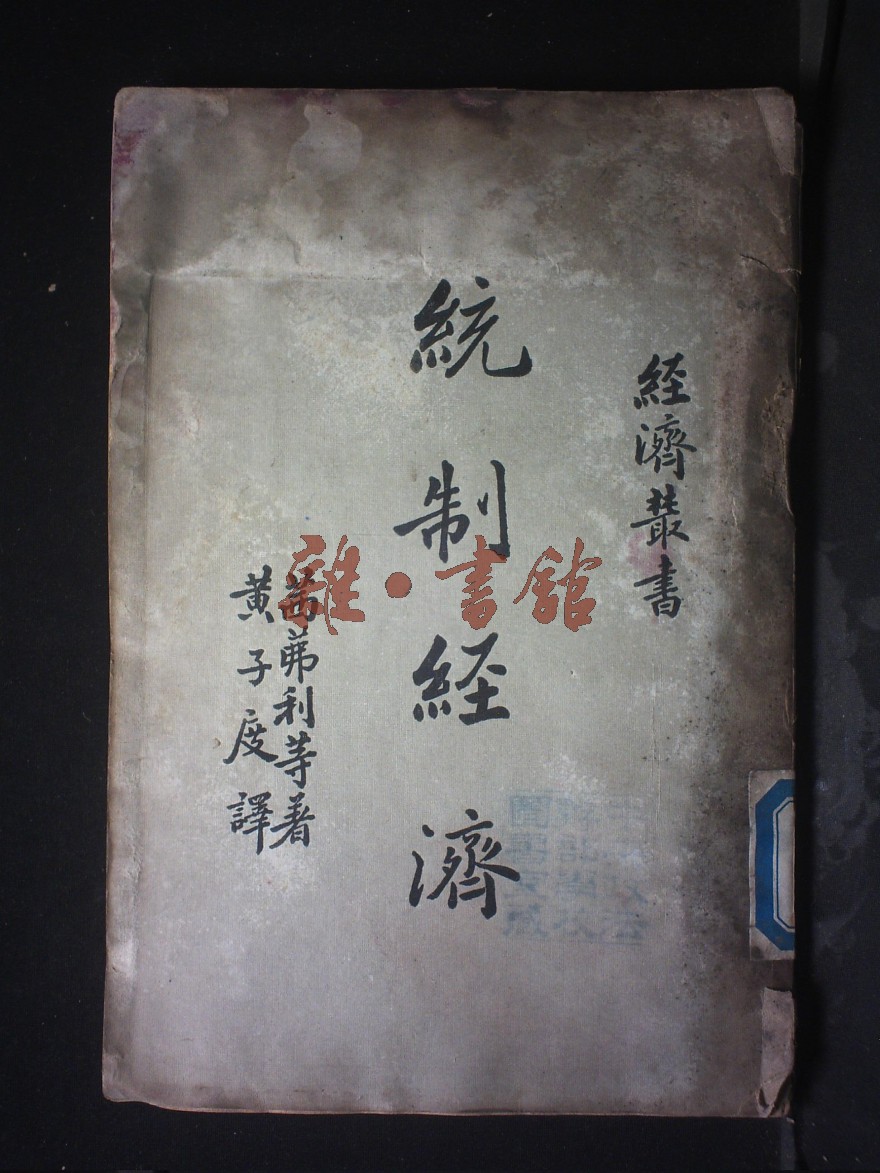 經濟叢書
統制經濟
弗利等著
黃子度譯
雜·書館